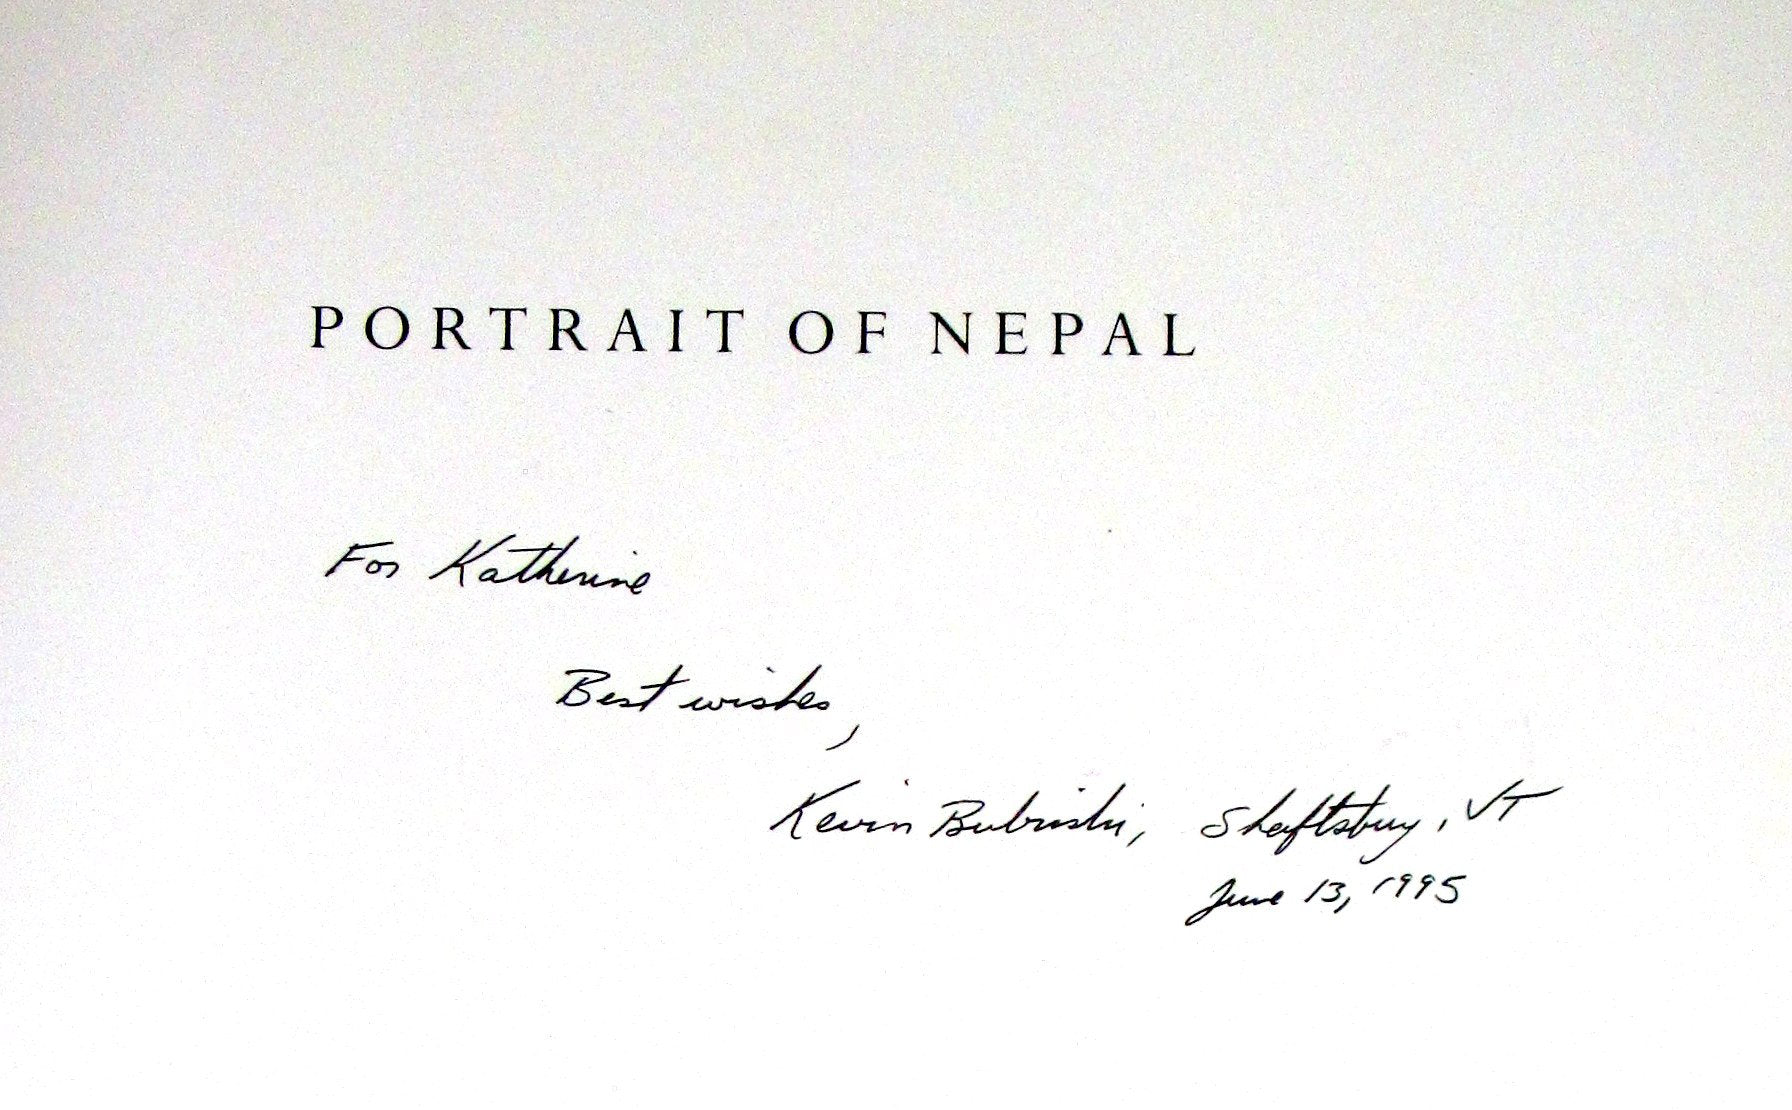 PORTRAIT OF NEPAL
For Katherine
Best wishes,
Kevin Bubriski, Shaftsbury, VT
June 13, 1995